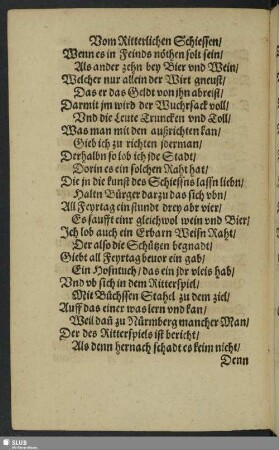 Vom Ritterlichen Schiessen/
Wenn es in Feinds nöthen solt sein/
Als ander zehn bey Bier vnd Wein/
Welcher nur allein der Wirt gneust/
Das er das Geldt von jhn abreist/
Darmit jm wird der Wuchrsack voll/
Vnd die Leute Truncken vnd Toll/
Was man mit den außrichten kan/
Gieb ich zu richten jderman/
Derhalbn so lob ich jde Stadt/
Dorin es ein solchen Raht hat/
Die jn die kunst des Schiessns lassn liebn/
Haltn Bürger darzu das sich vbn/
All Feyrtag ein stundt drey abr vier/
Es saufft einr gleichwol wein vnd Bier/
Ich lob auch ein Erbarn Weisn Raht/
Der also die Schützen begnadt/
Giebt all Feyrtag beuor ein gab/
Ein Hosntuch/ das ein jdr vleis hab/
Vnd vb sich in dem Ritterspiel/
Mit Büchssen Stahel zu dem ziel/
Auff das einer was lern vnd kan/
Weil dañ zu Nürmberg mancher Man/
Der des Ritterspiels ist bericht/
Als denn hernach schadt es keim nicht/
Denn
SLUB